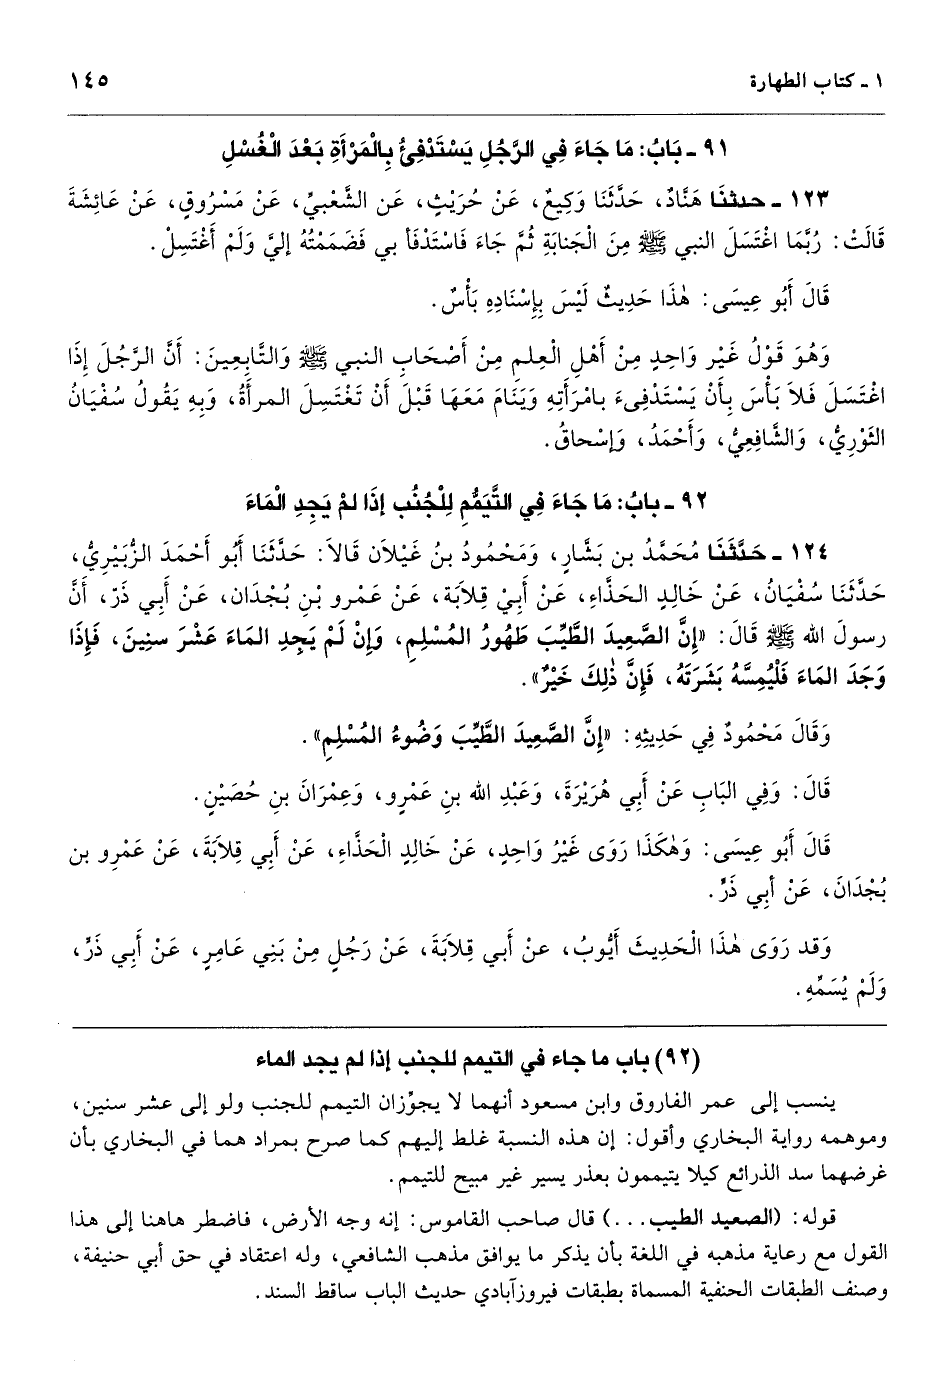 ١ ـ كتاب الطهارة ١٤٥
٩١ ـ بَابُ: مَا جَاءَ فِي الرَّجُلِ يَسْتَدْفِئُ بِالْمَرْأَةِ بَعْدَ الْغُسْلِ
١٢٣ ـ حدثنَا هَنَّادٌ، حَدَّثَنَا وَكِيعٌ، عَنْ حُرَيْثٍ، عَنِ الشَّعْبيِّ، عَنْ مَسْرُوقٍ، عَنْ عَائِشَةَ
قَالَتْ: رُبَّمَا اغْتَسَلَ النبي ﷺ مِنَ الْجَنابَةِ ثُمَّ جَاءَ فَاسْتَدْفَأ بي فَضَمَمْتُهُ إليَّ وَلَمْ أَغْتَسِلْ.
قَالَ أَبُو عِيسَى: هٰذَا حَدِيثٌ لَيْسَ بِإِسْنَادِهِ بَأْسٌ.
وَهُوَ قَوْلُ غَيْرِ وَاحِدٍ مِنْ أَهْلِ الْعِلمِ مِنْ أَصْحَابِ النبي ﷺ وَالتَّابِعِينَ: أَنَّ الرَّجُلَ إِذَا
اغْتَسَلَ فَلاَ بَأْسَ بِأَنْ يَسْتَدْفِىءَ بامْرَأَتِهِ وَيَنَامَ مَعَهَا قَبْلَ أَنْ تَغْتَسِلَ المرأَةُ، وَبِهِ يَقُولُ سُفْيَانُ
الثوْرِيُّ، وَالشَّافِعِيُّ، وَأَحْمَدُ، وَإِسْحاقُ.
٩٢ ـ بابُ: مَا جَاءَ فِي التَّيَمُّمِ لِلْجُنُبِ إِذَا لمْ يَجِدِ الْمَاءَ
١٢٤ ـ حَدَّثَنَا مُحَمَّدُ بن بَشَّارٍ، وَمَحْمُودُ بنُ غَيْلاَن قَالاَ: حَدَّثَنَا أَبُو أَحْمَدَ الزُّبَيْرِيُّ،
حَدَّثَنَا سُفْيَانُ، عَنْ خالِدٍ الحَذَّاءِ، عَنْ أَبِيْ قِلاَبَةَ، عَنْ عَمْرو بنِ بُجْدَان، عَنْ أَبي ذَرّ، أَنَّ
رسولَ الله ﷺ قَالَ: «إِنَّ الصَّعِيدَ الطَّيِّبَ طَهُورُ المُسْلِمِ، وَإِنْ لَمْ يَجِدِ المَاءَ عَشْرَ سنِينَ، فَإِذَا
وَجَدَ المَاءَ فَلْيُمِسَّهُ بَشَرَتَهُ، فَإِنَّ ذٰلِكَ خَيْرٌ».
وَقَالَ مَحْمُودٌ فِي حَدِيثِهِ: «إِنَّ الصَّعِيدَ الطَّيِّبَ وَضُوءُ المُسْلِمِ».
قَالَ: وَفِي البَابِ عَنْ أَبي هُرَيْرَةَ، وَعَبْدِ الله بنِ عَمْرٍو، وَعِمْرَانَ بنِ حُصَيْنٍ.
قَالَ أَبُو عِيسَى: وَهٰكَذَا رَوَى غَيْرُ وَاحِدٍ، عَنْ خَالِدٍ الْحَذَّاءِ، عَنْ أَبي قِلاَبَةَ، عَنْ عَمْرِو بن
بُجْدَانَ، عَنْ أَبي ذَرٍّ.
وَقد رَوَى هٰذَا الْحَدِيثَ أَيُّوبُ، عنْ أَبي قِلاَبَةَ، عَنْ رَجُلٍ مِنْ بَنِي عَامِرٍ، عَنْ أَبي ذَرٍّ،
وَلَمْ يُسَمِّهِ.
(٩٢) باب ما جاء في التيمم للجنب إذا لم يجد الماء
ينسب إلى عمر الفاروق وابن مسعود أنهما لا يجوِّزان التيمم للجنب ولو إلى عشر سنين،
وموهمه رواية البخاري وأقول: إن هذه النسبة غلط إليهم كما صرح بمراد هما في البخاري بأن
غرضهما سد الذرائع كيلا يتيممون بعذر يسير غير مبيح للتيمم.
قوله: (الصعيد الطيب...) قال صاحب القاموس: إنه وجه الأرض، فاضطر هاهنا إلى هذا
القول مع رعاية مذهبه في اللغة بأن يذكر ما يوافق مذهب الشافعي، وله اعتقاد في حق أبي حنيفة،
وصنف الطبقات الحنفية المسماة بطبقات فيروزآبادي حديث الباب ساقط السند.